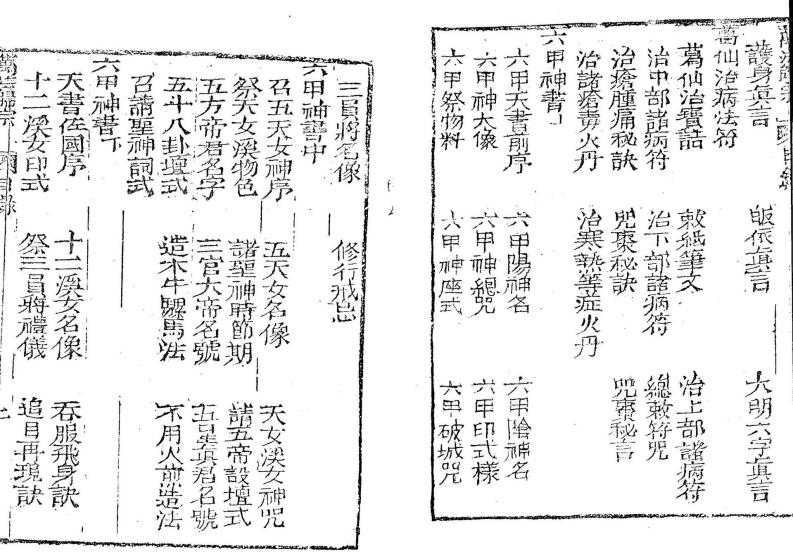 護身真言 皈依真言 大明六字真言
葛仙治病法符
葛仙治寶誥 敕紙筆文 治上部諸病符
治中部諸病符 治下部諸病符 總敕符咒
治瘡腫痛秘訣 咒棗秘訣 咒棗秘言
治諸瘡毒火丹 治寒熱等症火丹
六甲神書上
六甲天書前序 六甲陽神名 六甲陰神名
六甲神大像 六甲神總咒 六甲印式樣
六甲祭物料 六甲神座式 六甲破城咒
三員將名像 修行戒忌
六甲神書中
召五天女神序 五天女名像 天女溪女神咒
祭天女溪物色 諸聖神時節期 請五帝設壇式
五方帝君名字 三官大帝名號 五星真君名號
五斗八卦壇式 造木牛騾馬法 不用火煎造法
召請聖神詞式
六甲神書下
天書佐國序 十二溪女名像 吞服飛身訣
十二溪女印式 祭三員將禮儀 追目再現訣
目錄